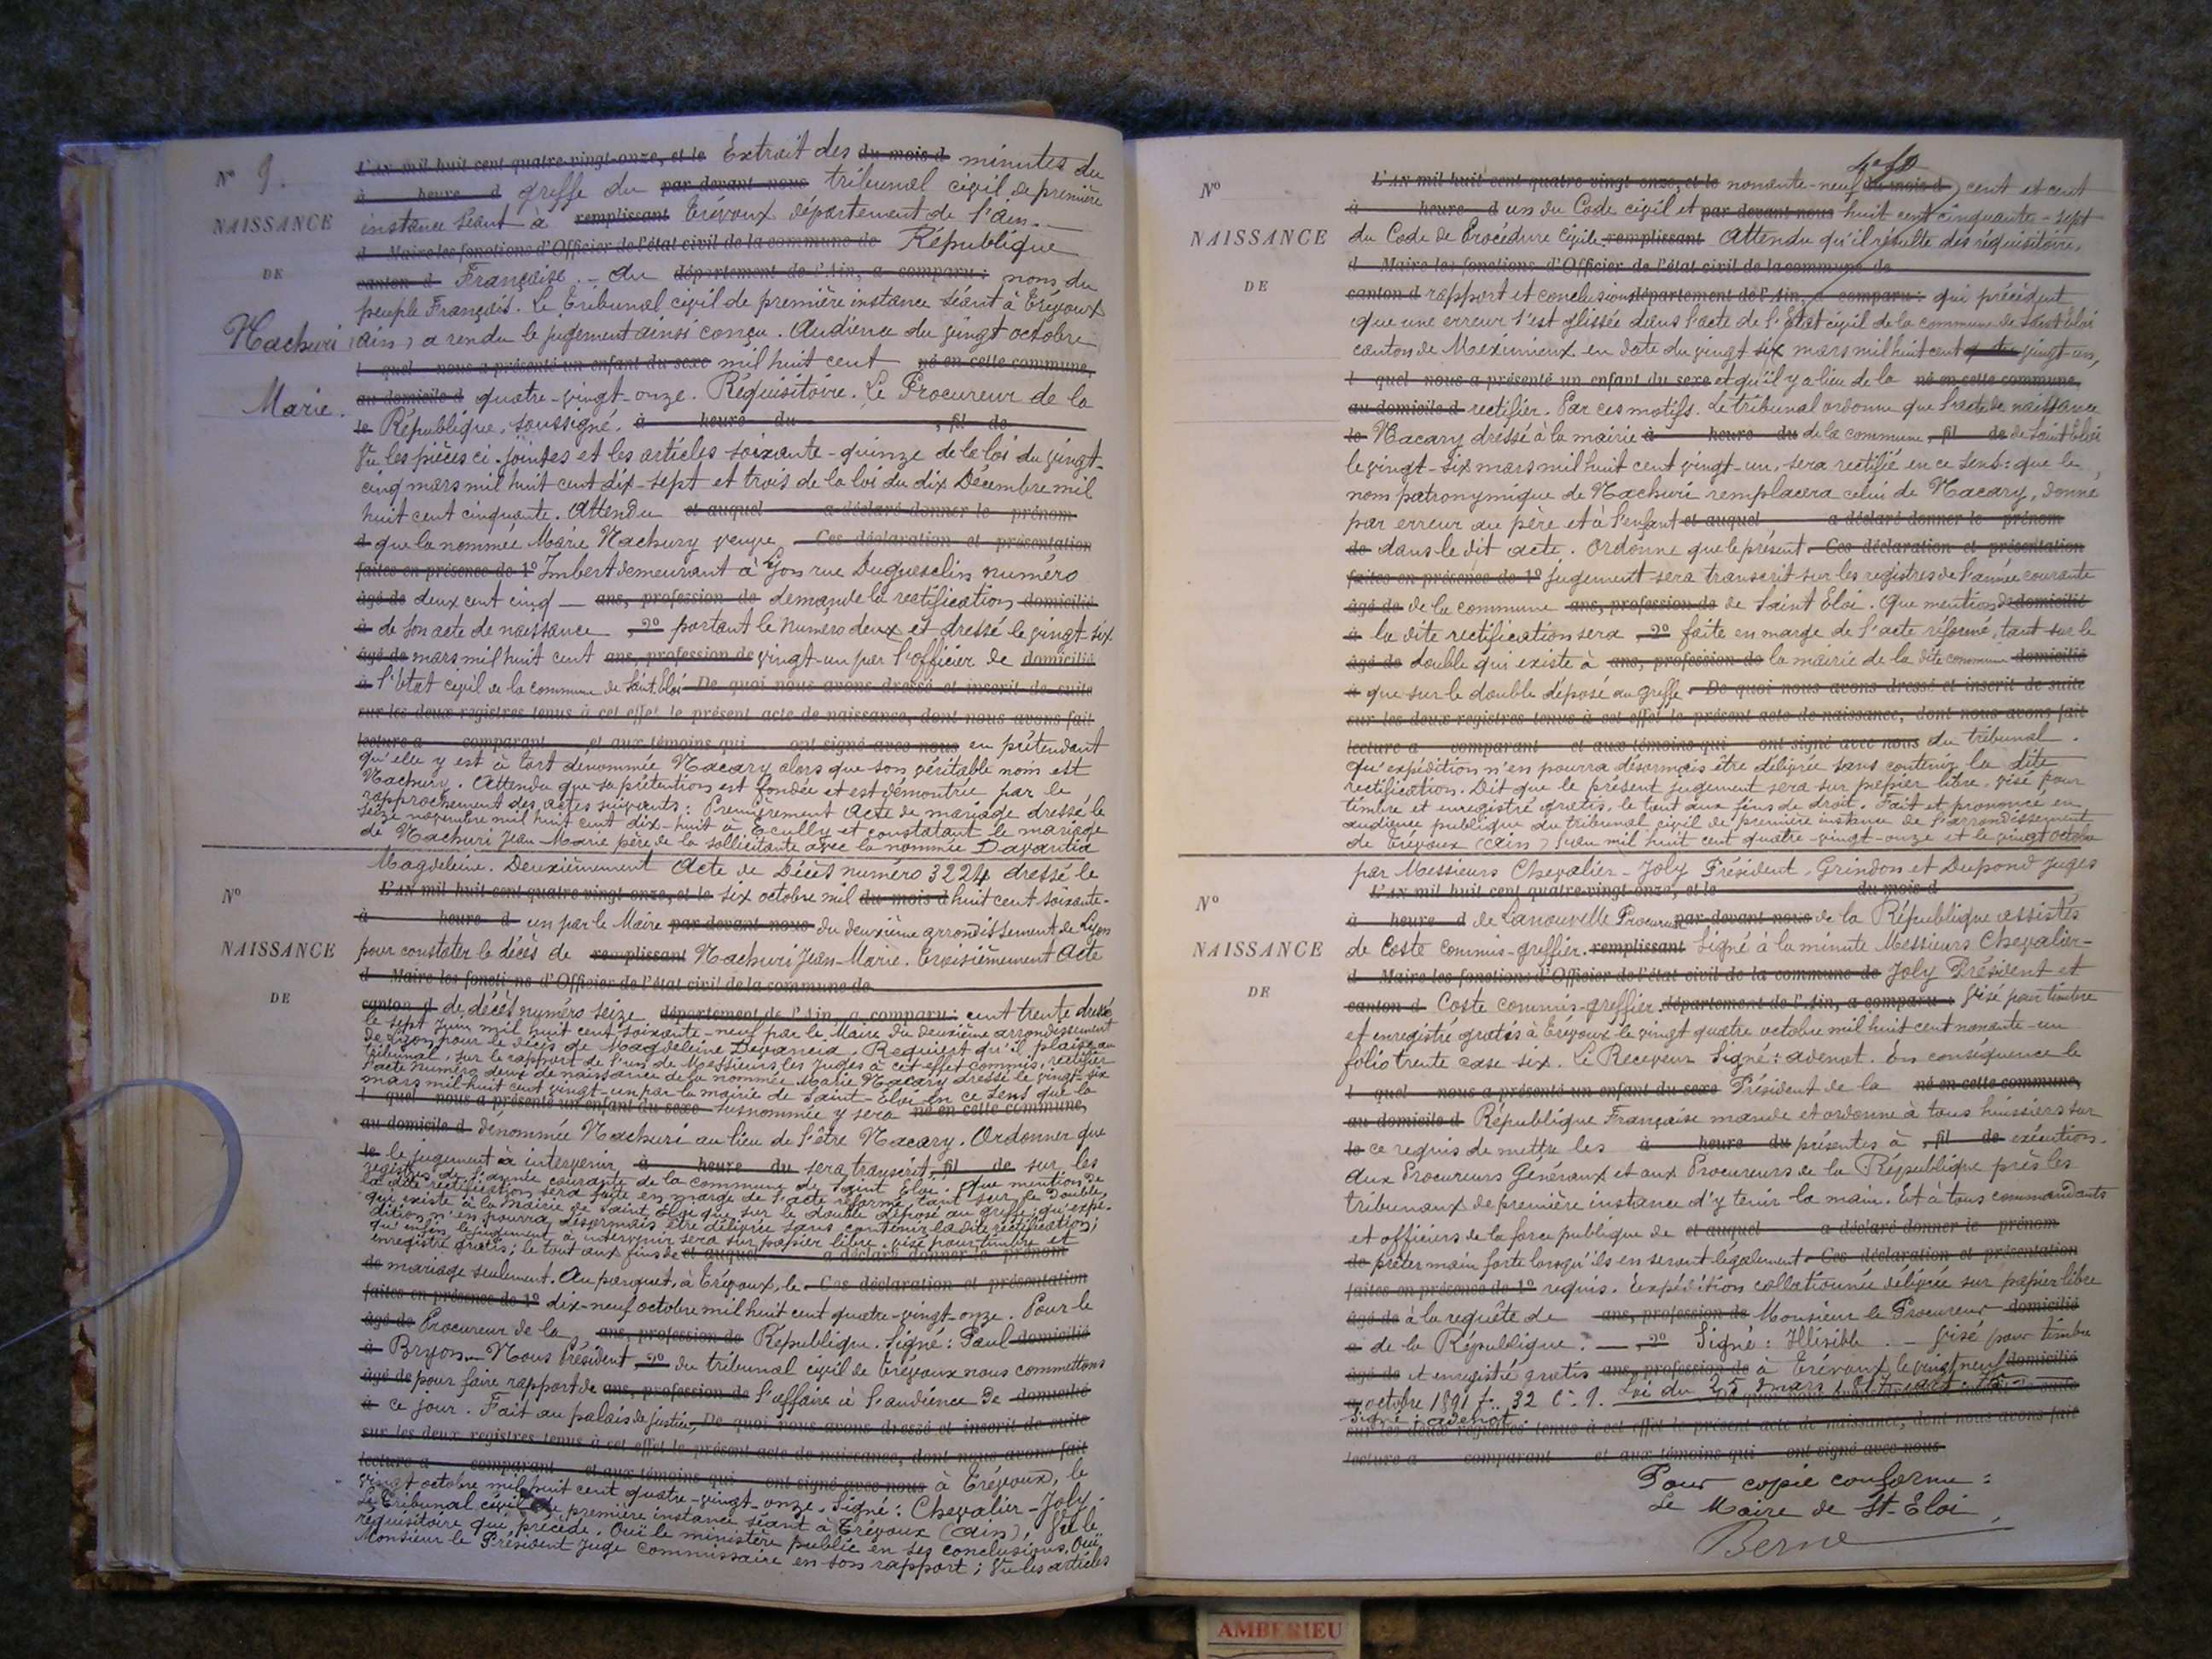 N° 9.
NAISSANCE
DE
Nachuri
Marie.
L'AN mil huit cent quatre-vingt-onze, et le Extrait des du mois d minutes du
à heure d greffe du par devant nous tribunal civil de première
instance séant à remplissant Trévoux département de l'Ain._
d Maire les fonctions d'Officier de l'état civil de la commune de République
canton d Française. _ Au département de l'Ain, a comparu : nom du
peuple Français. Le Tribunal civil de première instance séant à Trévoux
(Ain) a rendu le jugement ainsi conçu. Audience du vingt octobre
l quel nous a présenté un enfant du sexe mil huit cent né en cette commune,
au domicile d quatre-vingt-onze. Réquisitoire. Le Procureur de la
le République, soussigné. à heure du , fil de
Vu les pièces ci-jointes et les articles soixante-quinze de la loi du vingt-
cinq mars mil huit cent dix-sept et trois de la loi du dix Décembre mil
huit cent cinquante. Attendu et auquel a déclaré donner le prénom
d que la nommée Marie Nachury veuve Ces déclaration et présentation
faites en présence de 1° Imbert demeurant à Lyon rue Duguesclin numéro
âgé de deux cent cinq _ ans, profession de demande la rectification domicilié
à de son acte de naissance , 2° portant le numéro deux et dressé le vingt-six
âgé de mars mil huit cent ans, profession de vingt-un par l'officier de domicilié
à l'état civil de la commune de Saint Eloi De quoi nous avons dressé et inscrit de suite
sur les deux registres tenus à cet effet le présent acte de naissance, dont nous avons fait
lecture a comparant et aux témoins qui ont signé avec nous en prétendant
qu'elle y est à tort dénommée Nacary alors que son véritable nom est
Nachury. Attendu que sa prétention est fondée et est démontrée par le
rapprochement des actes suivants : Premièrement Acte de mariage dressé le
seize novembre mil huit cent dix-huit à Ecully et constatant le mariage
de Nachuri Jean Marie père de la sollicitante avec la nommée Davantia
Magdeleine. Deuxièmement Acte de Décès numéro 3224 dressé le
N°
NAISSANCE
DE
L'AN mil huit cent quatre-vingt-onze, et le six octobre mil du mois d huit cent soixante-
à heure d un par le Maire par devant nous du deuxième arrondissement de Lyon
pour constater le décès de remplissant Nachuri Jean-Marie. Troisièmement Acte
d Maire les fonctions d'Officier de l'état civil de la commune de
canton d de décès numéro seize département de l'Ain, a comparu : cent trente dressé
le sept Juin mil huit cent soixante-neuf par le Maire du deuxième arrondissement
de Lyon pour le décès de Magdeleine Devancia. Requiert qu'il plaise au
tribunal, sur le rapport de l'un de Messieurs les Juges à cet effet commis, rectifier
l'acte numéro deux de naissance de la nommée Marie Nacary dressé le vingt-six
mars mil huit cent vingt-un par la mairie de Saint-Eloi en ce sens que la
l quel nous a présenté un enfant du sexe susnommée y sera né en cette commune,
au domicile d dénommée Nachuri au lieu de l'être Nacary. Ordonner que
le le jugement à intervenir à heure du sera transcrit, fil de sur les
registres de l'année courante de la commune de Saint Eloi. Que mention de
la dite rectification sera faite en marge de l'acte réformé tant sur le double
qui existe à la mairie de Saint Eloi que sur le double déposé au greffe; qu'expé-
dition n'en pourra désormais être délivrée sans contenir la dite rectification;
qu'enfin le jugement à intervenir sera sur papier libre visé pour timbre et
enregistré gratis; le tout aux fins de et auquel a déclaré donner le prénom
de mariage seulement. Au parquet, à Trévoux, le Ces déclaration et présentation
faites en présence de 1° dix-neuf octobre mil huit cent quatre-vingt-onze. Pour le
âgé de Procureur de la ans, profession de République. Signé : Paul domicilié
à Bryon. _ Nous Président , 2° du tribunal civil de Trévoux nous commettons
âgé de pour faire rapport de ans, profession de l'affaire à l'audience de domicilié
à ce jour. Fait au palais de justice, De quoi nous avons dressé et inscrit de suite
sur les deux registres tenus à cet effet le présent acte de naissance, dont nous avons fait
lecture a comparant et aux témoins qui ont signé avec nous à Trévoux, le
vingt octobre mil huit cent quatre-vingt-onze. Signé : Chevalier-Joly.
Le Tribunal civil de première instance séant à Trévoux (Ain), Vu le
réquisitoire qui précède. Ouï le ministère public en ses conclusions. Ouï
Monsieur le Président Juge commissaire en son rapport; Vu les articles
N°
NAISSANCE
DE
L'AN mil huit cent quatre-vingt-onze, et le nonante-neuf du mois d cent et cent
à heure d un du Code civil et par devant nous huit cent cinquante-sept
du Code de Procédure civile remplissant Attendu qu'il résulte des réquisitoire,
d Maire les fonctions d'Officier de l'état civil de la commune de
canton d rapport et conclusions département de l'Ain, a comparu : qui précèdent
que une erreur s'est glissée dans l'acte de l'Etat civil de la commune de Saint Eloi
canton de Meximieux en date du vingt six mars mil huit cent quatre vingt-un,
l quel nous a présenté un enfant du sexe et qu'il y a lieu de la né en cette commune,
au domicile d rectifier. Par ces motifs. Le tribunal ordonne que l'acte de naissance
le Nacary dressé à la mairie à heure du de la commune , fil de de Saint Eloi
le vingt-six mars mil huit cent vingt-un, sera rectifié en ce sens : que le
nom patronymique de Nachuri remplacera celui de Nacary, donné
par erreur au père et à l'enfant et auquel a déclaré donner le prénom
de dans le dit acte. Ordonne que le présent Ces déclaration et présentation
faites en présence de 1° jugement sera transcrit sur les registres de l'année courante
âgé de de la commune ans, profession de de Saint Eloi. Que mention de domicilié
à la dite rectification sera , 2° faite en marge de l'acte réformé, tant sur le
âgé de double qui existe à ans, profession de la mairie de la dite commune domicilié
à que sur le double déposé au greffe De quoi nous avons dressé et inscrit de suite
sur les deux registres tenus à cet effet le présent acte de naissance, dont nous avons fait
lecture a comparant et aux témoins qui ont signé avec nous du tribunal.
Qu'expédition n'en pourra désormais être délivrée sans contenir la dite
rectification. Dit que le présent jugement sera sur papier libre, visé pour
timbre et enregistré gratis, le tout aux fins de droit. Fait et prononcé en
audience publique du tribunal civil de première instance de l'arrondissement
de Trévoux (Ain) l'an mil huit cent quatre-vingt-onze et le vingt octobre
par Messieurs Chevalier-Joly Président, Grindon et Dupond Juges
N°
NAISSANCE
DE
L'AN mil huit cent quatre-vingt-onze, et le du mois d
à heure d de Lanouvelle Procureur par devant nous de la République assistés
de Coste commis-greffier. remplissant Signé à la minute Messieurs Chevalier-
d Maire les fonctions d'Officier de l'état civil de la commune de Joly Président et
canton d Coste commis-greffier. département de l'Ain, a comparu : Visé pour timbre
et enregistré gratis à Trévoux le vingt quatre octobre mil huit cent nonante-un
folio trente case six. Le Receveur Signé : Adenot. En conséquence le
l quel nous a présenté un enfant du sexe Président de la né en cette commune,
au domicile d République Française mande et ordonne à tous huissiers sur
le ce requis de mettre les à heure du présentes à , fil de exécution.
Aux Procureurs Généraux et aux Procureurs de la République près les
tribunaux de première instance d'y tenir la main. Et à tous commandants
et officiers de la force publique de et auquel a déclaré donner le prénom
de prêter main forte lorsqu'ils en seront légalement Ces déclaration et présentation
faites en présence de 1° requis. Expédition collationnée délivrée sur papier libre
âgé de à la requête de ans, profession de Monsieur le Procureur domicilié
à de la République. _ , 2° Signé : Illisible. _ Visé pour timbre
âgé de et enregistré gratis ans, profession de à Trévoux, le vingt neuf domicilié
à octobre 1891 f° 32 C. 9. Loi du 25 mars 1817 art. 75
Signé : Adenot.
sur les deux registres tenus à cet effet le présent acte de naissance, dont nous avons fait
lecture a comparant et aux témoins qui ont signé avec nous
Pour copie conforme :
Le Maire de St-Eloi,
AMBERIEU